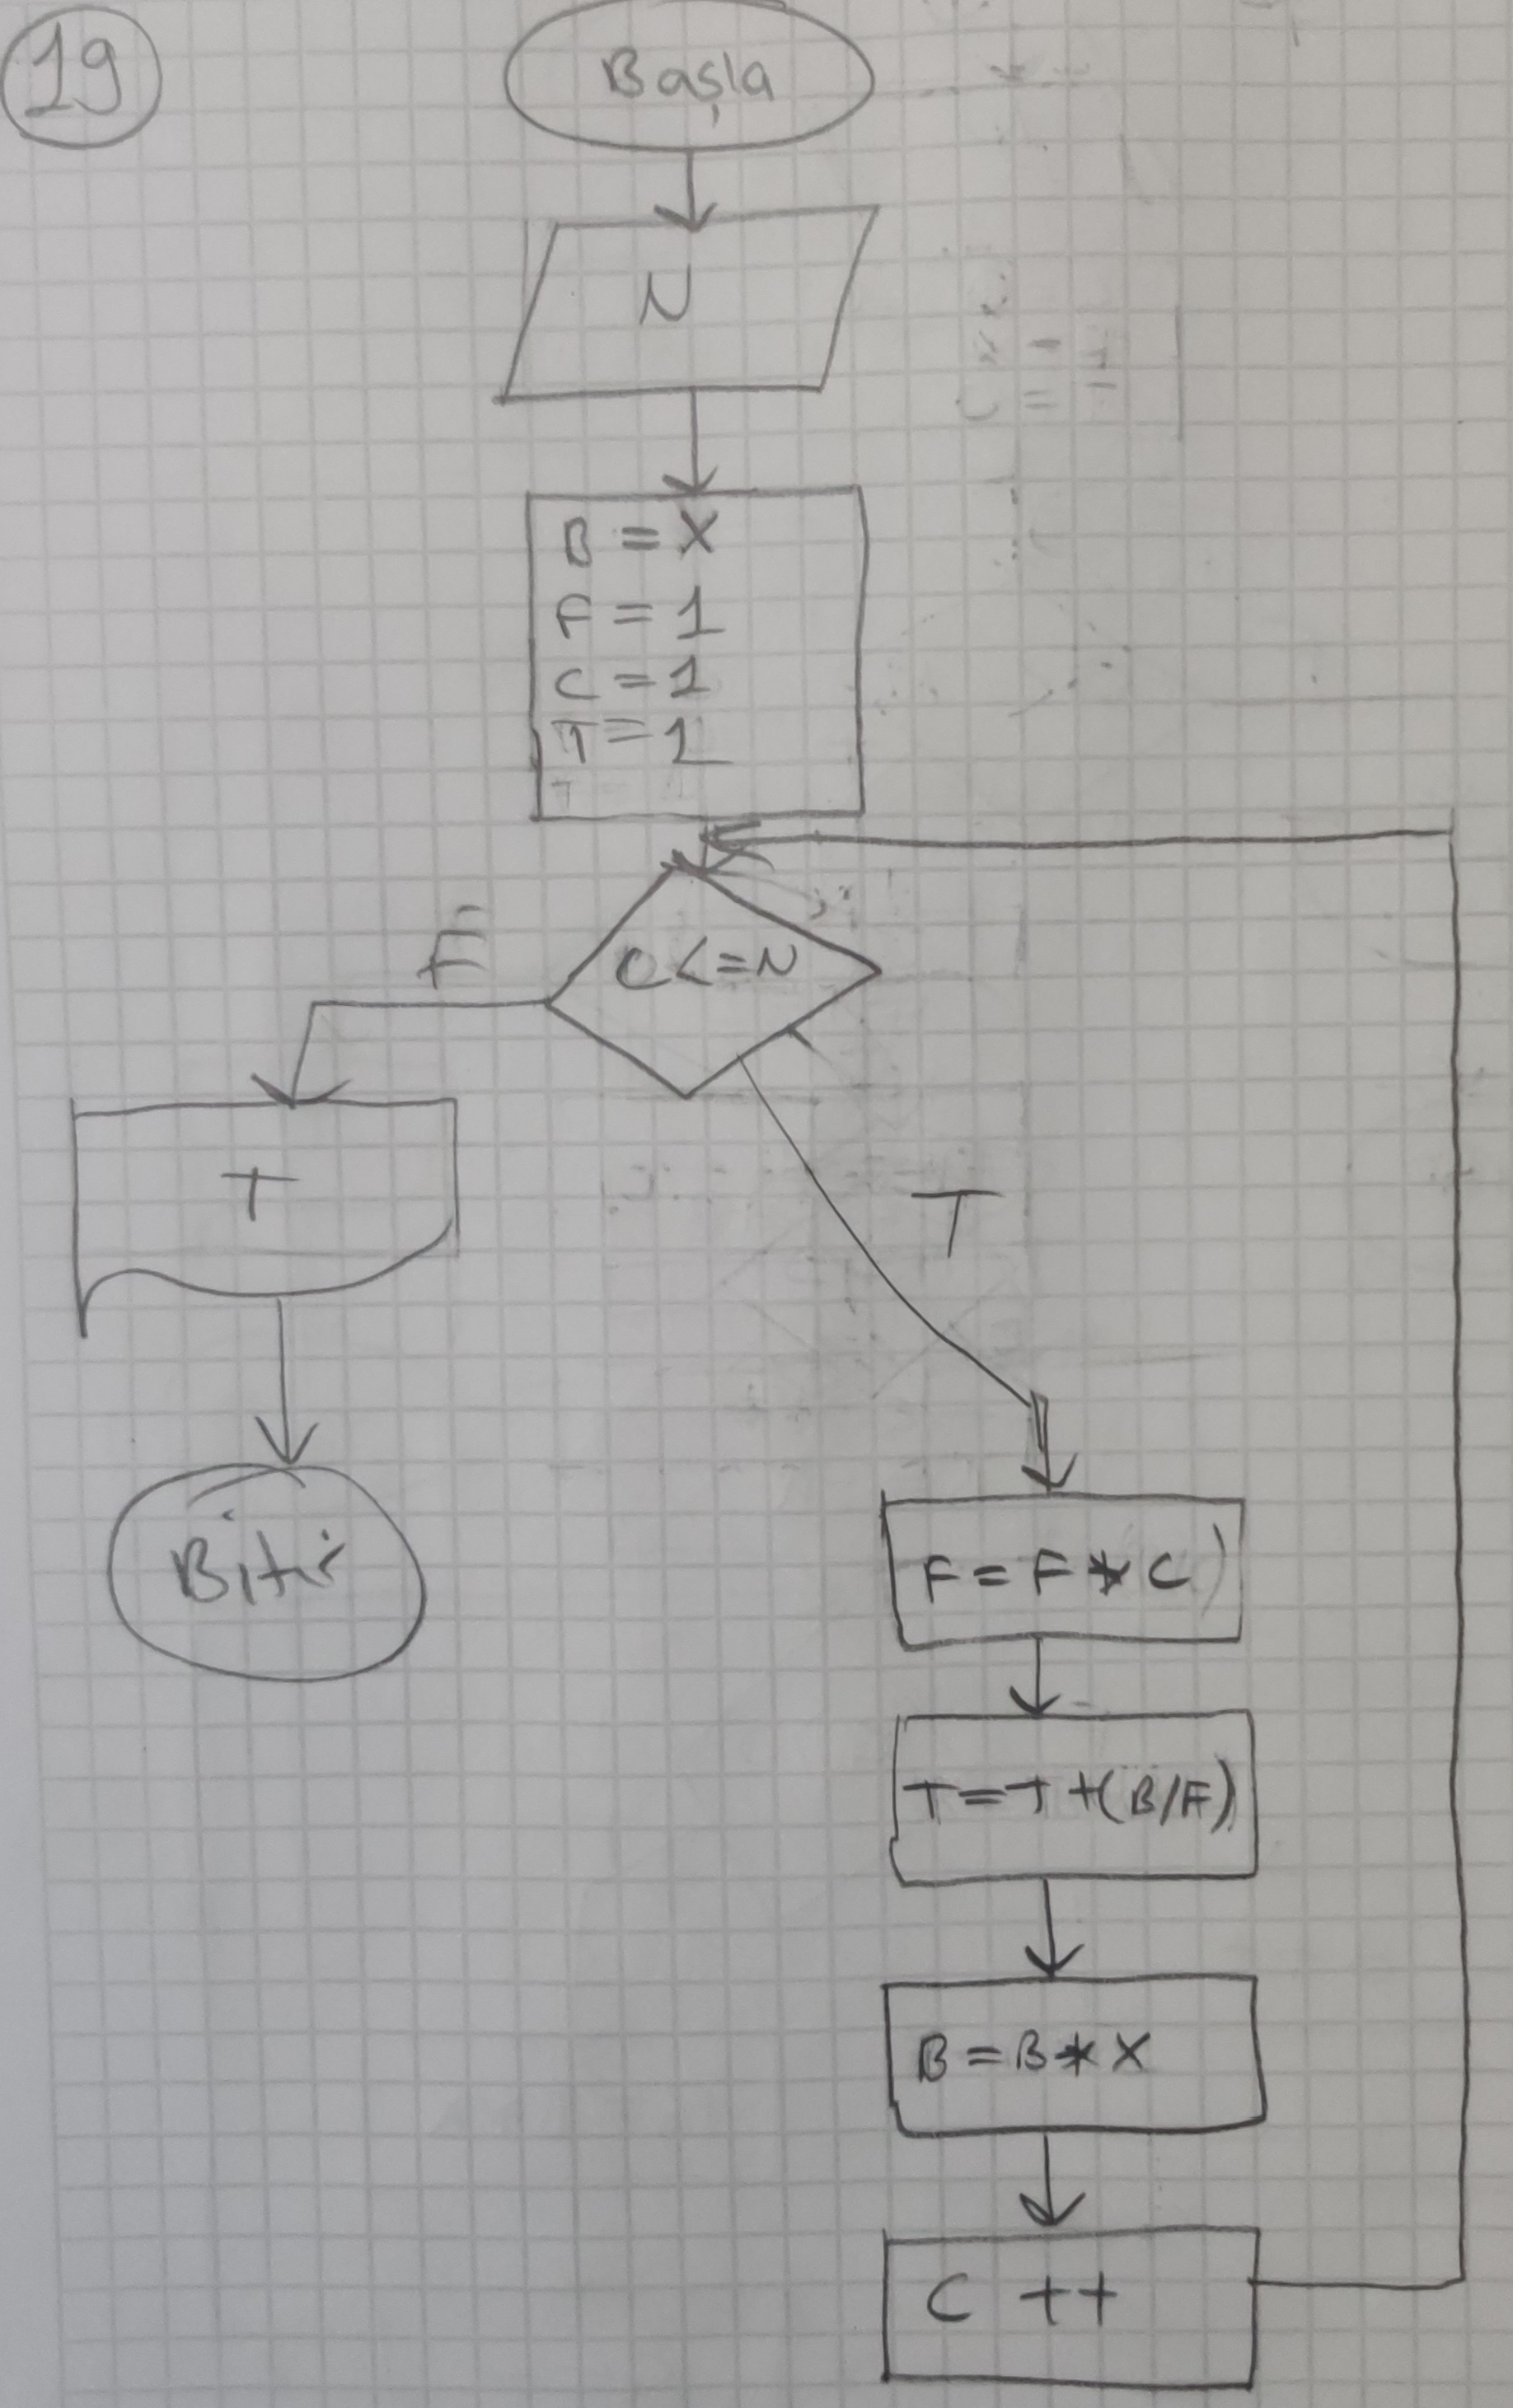 19
Başla
N
B = X
F = 1
C = 1
T = 1
C <= N
F
T
T
Bitir
F = F * C
T = T + (B/F)
B = B * X
C ++